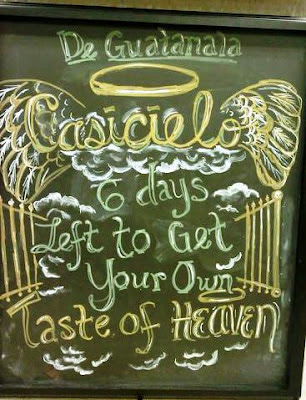 De Guatamala
Casicielo
6 days
Left to Get
Your Own
Taste of HEAVEN